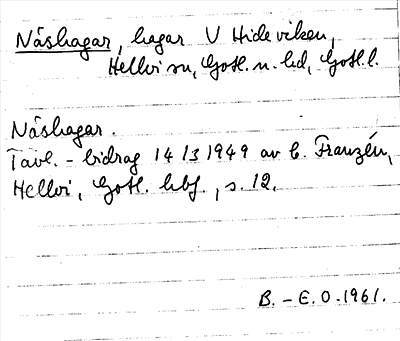 Näshagar, hagar V Hideviken,
Hellvi sn, Gotl. n. hd, Gotl. l.
Näshagar.
Tävl. - bidrag 14/3 1949 av E. Franzén,
Hellvi, Gotl. hbf., s. 12.
B. - E. O. 1961.